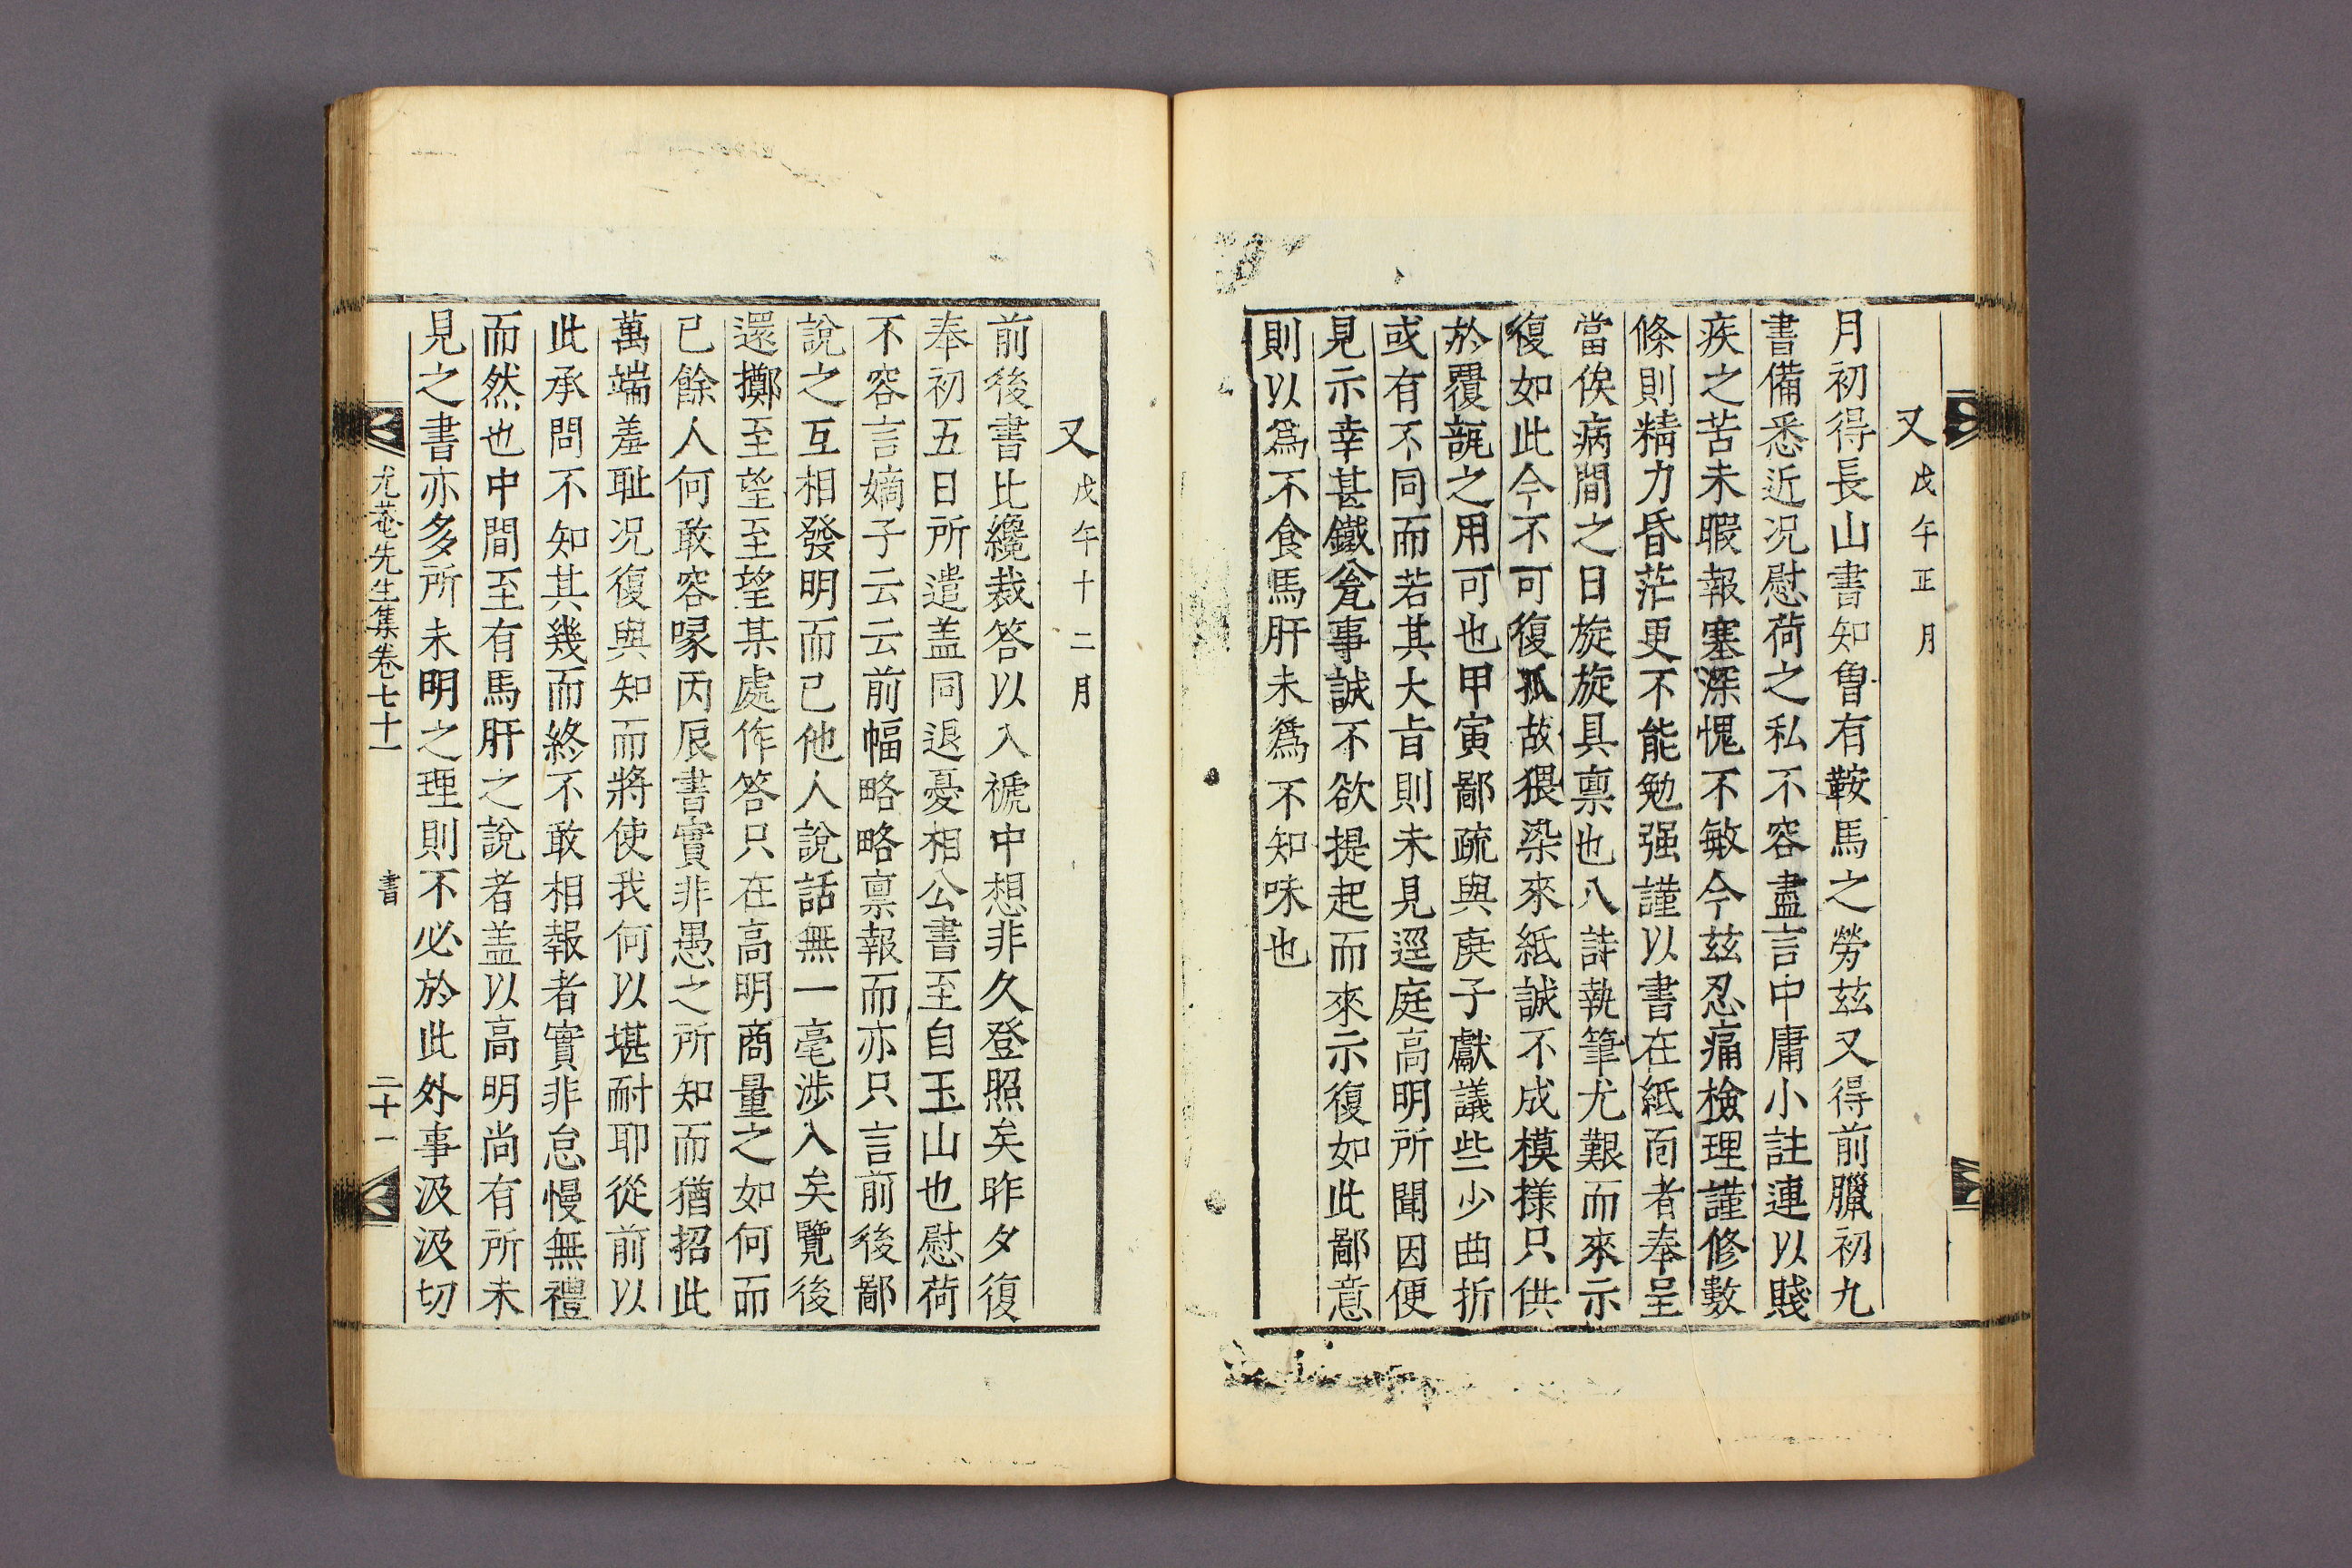 又戊午正月
月初得長山書知曾有鞍馬之勞茲又得前臘初九
書備悉近况慰荷之私不容盡言中庸小註連以賤
疾之苦未暇報塞深愧不敏今玆忍痛檢理謹修數
條則精力昏茫更不能勉强謹以書在紙面者奉呈
當俟病間之日旋旋具禀也八詩執筆尤艱而來示
復如此今不可復孤故猥染來紙誠不成模㨾只供
於覆瓿之用可也甲寅鄙疏與庚子獻議些少曲折
或有不同而若其大旨則未見逕庭高明所聞因便
見示幸甚鐵瓮事誠不欲提起而來示復如此鄙意
則以爲不食馬肝未爲不知味也
又戊午十二月
前後書比纔裁答以入褫中想非久登照矣昨夕復
奉初五日所遣盖同退憂相公書至自玉山也慰荷
不容言嫡子云云前幅略略禀報而亦只言前後鄙
說之互相發明而已他人說話無一毫涉入矣覽後
還擲至望至望某處作答只在高明商量之如何而
已餘人何敢容喙丙辰書實非愚之所知而猶招此
萬端羞耻况復與知而將使我何以堪耐耶從前以
此承問不知其幾而終不敢相報者實非怠慢無禮
而然也中間至有馬肝之說者盖以高明尚有所未
見之書亦多所未明之理則不必於此外事汲汲切
尤菴先生集卷七十一　書　二十一